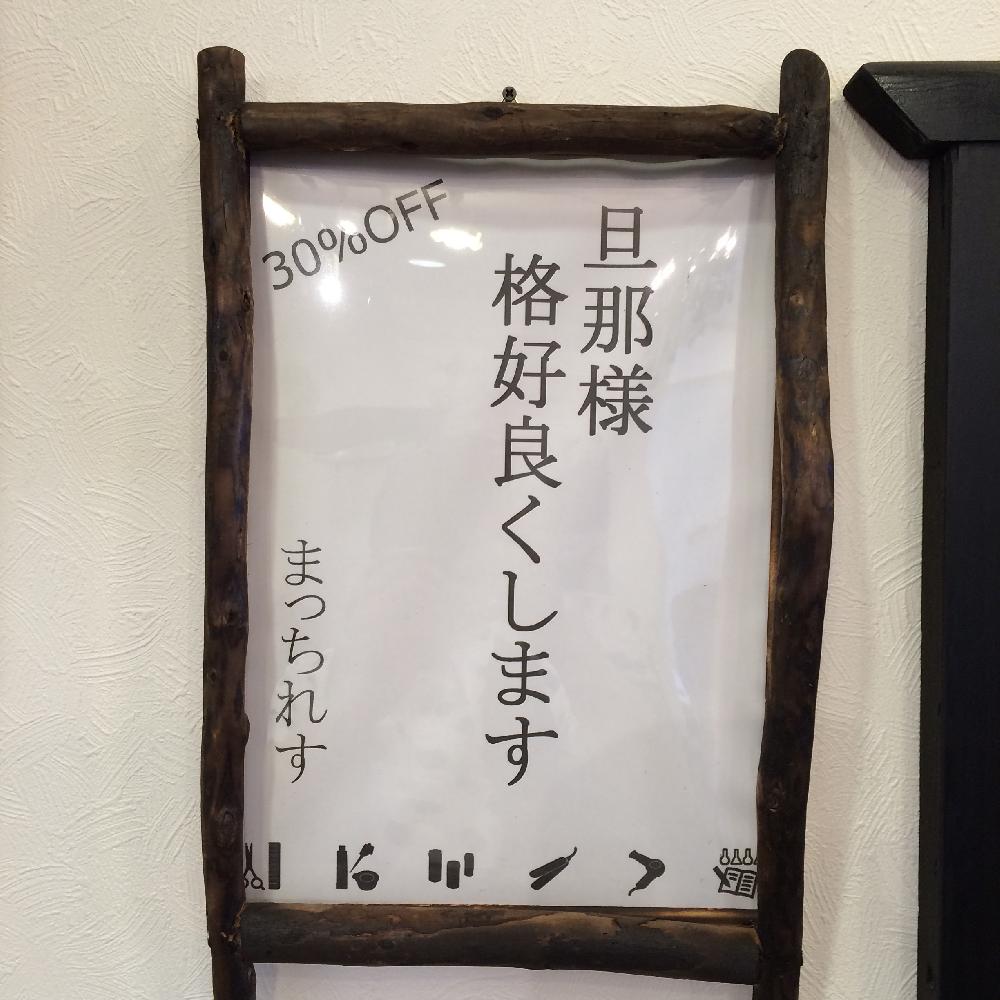 旦那様
格好良くします
30%OFF
まっちれす